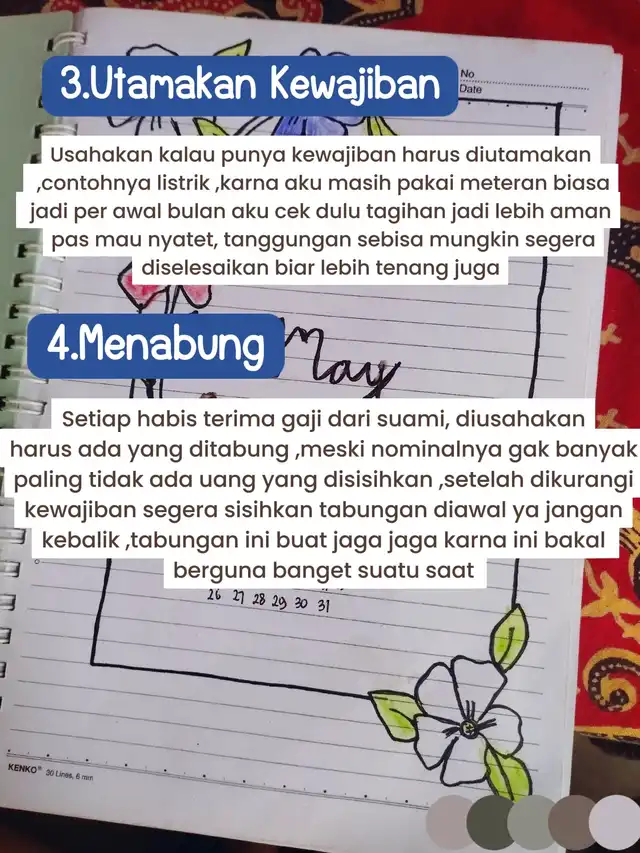 No
Date
3.Utamakan Kewajiban
Usahakan kalau punya kewajiban harus diutamakan
,contohnya listrik ,karna aku masih pakai meteran biasa
jadi per awal bulan aku cek dulu tagihan jadi lebih aman
pas mau nyatet, tanggungan sebisa mungkin segera
diselesaikan biar lebih tenang juga
4.Menabung
May
Setiap habis terima gaji dari suami, diusahakan
harus ada yang ditabung ,meski nominalnya gak banyak
paling tidak ada uang yang disisihkan ,setelah dikurangi
kewajiban segera sisihkan tabungan diawal ya jangan
kebalik ,tabungan ini buat jaga jaga karna ini bakal
berguna banget suatu saat
26 27 28 29 30 31
KENKO® 30 Lines, 6 mm